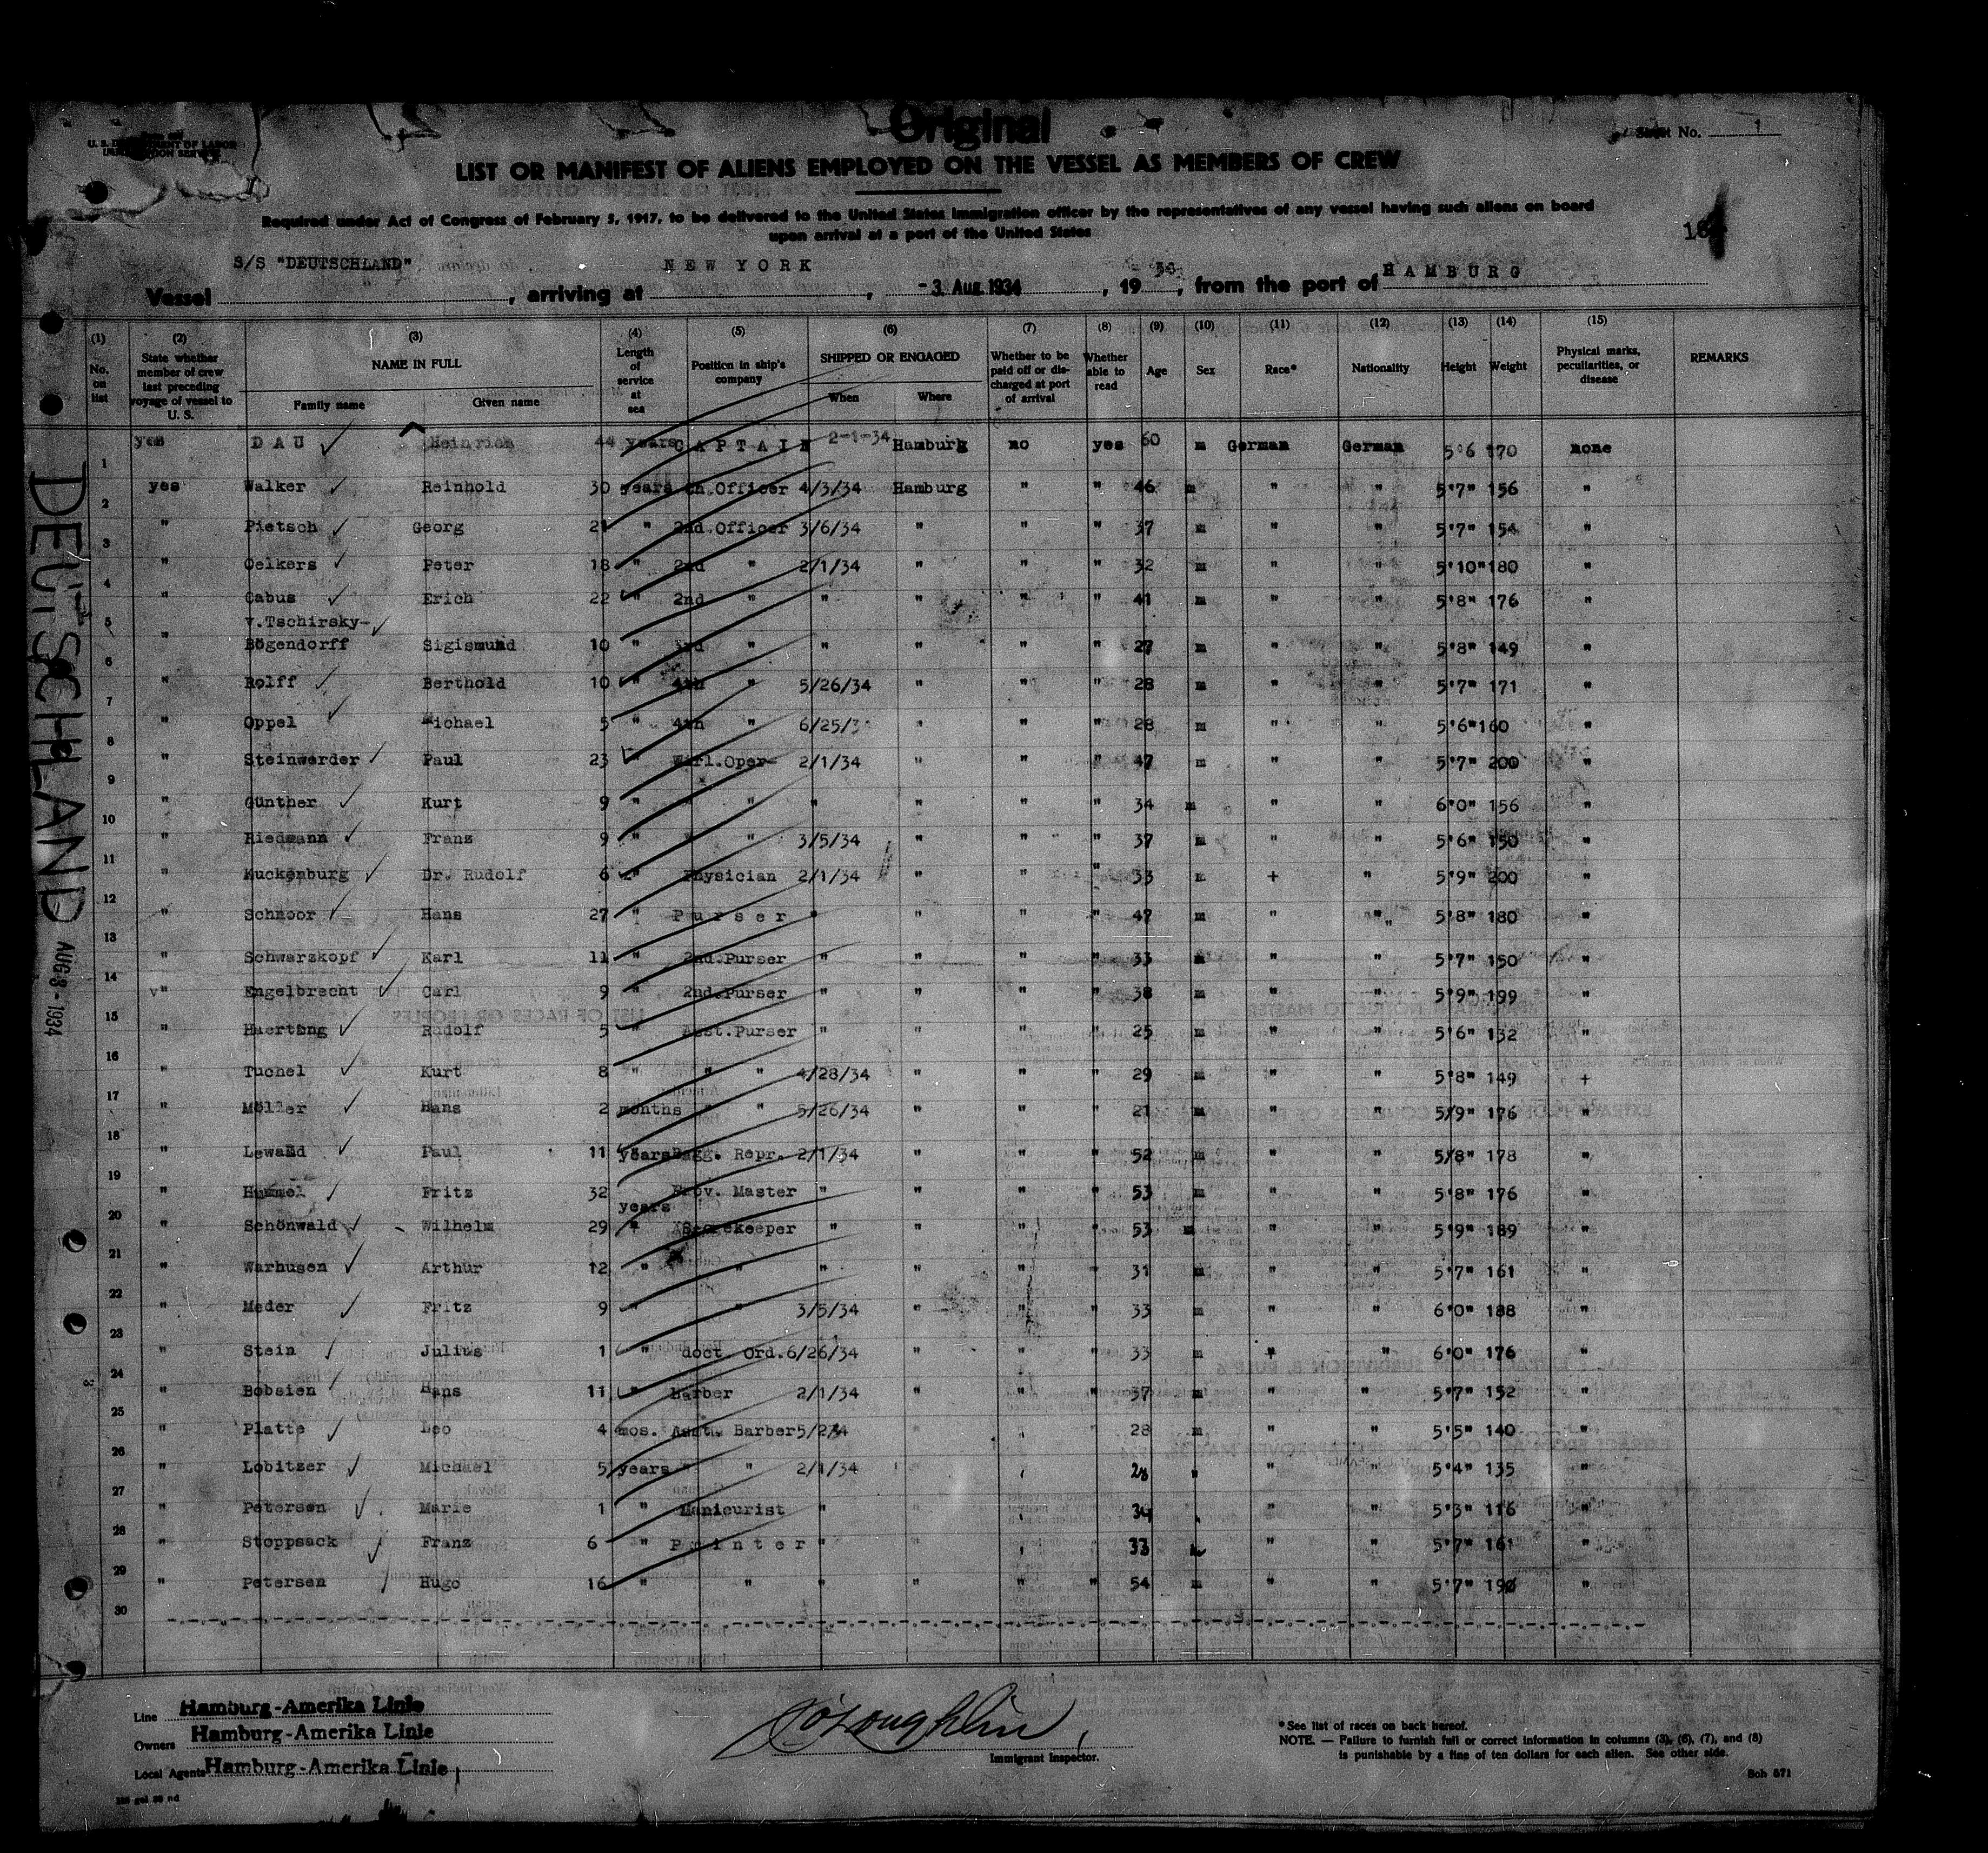 Original
U. S. DEPARTMENT OF LABOR
IMMIGRATION SERVICE
Sheet No. 1
LIST OR MANIFEST OF ALIENS EMPLOYED ON THE VESSEL AS MEMBERS OF CREW
Required under Act of Congress of February 5, 1917, to be delivered to the United States Immigration officer by the representatives of any vessel having such aliens on board
upon arrival at a port of the United States
Vessel S/S "DEUTSCHLAND", arriving at NEW YORK, -3 Aug 1934, 19 34, from the port of HAMBURG
(1) (2) (3) (4) (5) (6) (7) (8) (9) (10) (11) (12) (13) (14) (15)
No. on list | State whether member of crew last preceding voyage of vessel to U. S. | NAME IN FULL | Family name | Given name | Length of service at sea | Position in ship's company | SHIPPED OR ENGAGED | When | Where | Whether to be paid off or discharged at port of arrival | Whether able to read | Age | Sex | Race* | Nationality | Height | Weight | Physical marks, peculiarities, or disease | REMARKS
1 yes DAU Heinrich 44 years CAPTAIN 2-1-34 Hamburg no yes 60 m German German 5'6 170 none
2 yes Walker Reinhold 30 years Ch.Officer 4/3/34 Hamburg " " 46 m " " 5'7" 156 "
3 " Pietsch Georg 21 " 2nd.Officer 3/6/34 " " " 37 m " " 5'7" 154 "
4 " Oelkers Peter 18 " 2nd " 2/1/34 " " " 32 m " " 5'10" 180 "
5 " Cabus Erich 22 " 2nd " " " " " 41 m " " 5'8" 176 "
v.Tschirsky-
6 " Bögendorff Sigismund 10 " 3rd " " " " " 27 m " " 5'8" 149 "
7 " Rolff Berthold 10 " 4th " 5/26/34 " " " 28 m " " 5'7" 171 "
8 " Oppel Michael 5 " 4th " 6/25/3 " " " 28 m " " 5'6" 160 "
9 " Steinwerder Paul 23 " Wirl.Oper- 2/1/34 " " " 47 m " " 5'7" 200 "
10 " Günther Kurt 9 " " " " " " " 34 m " " 6'0" 156 "
11 " Riedmann Franz 9 " " " 3/5/34 " " " 37 m " " 5'6" 150 "
12 " Muckenburg Dr. Rudolf 6 " Physician 2/1/34 " " " 33 m + " 5'9" 200 "
13 " Schnoor Hans 27 " Purser " " " " 47 m " " 5'8" 180 "
14 " Schwarzkopf Karl 11 " 2nd.Purser " " " " 33 m " " 5'7" 150 "
15 " Engelbrecht Carl 9 " 2nd.Purser " " " " 38 m " " 5'9" 199 "
16 " Haerting Rudolf 5 " Asst.Purser " " " " 25 m " " 5'6" 132 "
17 " Tuchel Kurt 8 " " " 4/28/34 " " " 29 m " " 5'8" 149 +
18 " Möller Hans 2 months " " 5/26/34 " " " 21 m " " 5/9" 176 "
19 " Lewand Paul 11 years Bagg. Repr. 2/1/34 " " " 52 m " " 5/8" 178 "
20 " Hummel Fritz 32 years Prov. Master " " " " 53 m " " 5'8" 176 "
21 " Schönwald Wilhelm 29 " Storekeeper " " " " 53 m " " 5'9" 189 "
22 " Warhusen Arthur 12 " " " " " " 31 m " " 5'7" 161 "
23 " Meder Fritz 9 " " 3/5/34 " " " 33 m " " 6'0" 188 "
24 " Stein Julius 1 " doct. Ord. 6/26/34 " " " 33 m " " 6'0" 176 "
25 " Bobsien Hans 11 " Barber 2/1/34 " " " 37 m " " 5'7" 152 "
26 " Platte Leo 4 mos. Asst. Barber 5/234 " " " 28 m " " 5'5" 140 "
27 " Lobitzer Michael 5 years " " 2/1/34 " " 28 " " " 5'4" 135 "
28 " Petersen Marie 1 " Manicurist " " " 34 " " 5'3" 116 "
29 " Stoppsack Franz 6 " Printer " " " 33 " " 5'7" 161 "
30 " Petersen Hugo 16 " " " " " " 54 m " " 5'7" 190 "
DEUTSCHLAND
AUG 3 - 1934
Line Hamburg-Amerika Linie
Owners Hamburg-Amerika Linie
Local Agents Hamburg-Amerika Linie
O'Loughlin
Immigrant Inspector.
*See list of races on back hereof.
NOTE. — Failure to furnish full or correct information in columns (3), (6), (7), and (8)
is punishable by a fine of ten dollars for each alien. See other side.
Sch 571